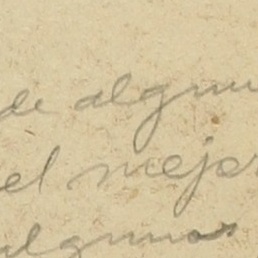 de algun
el mejor
algunas